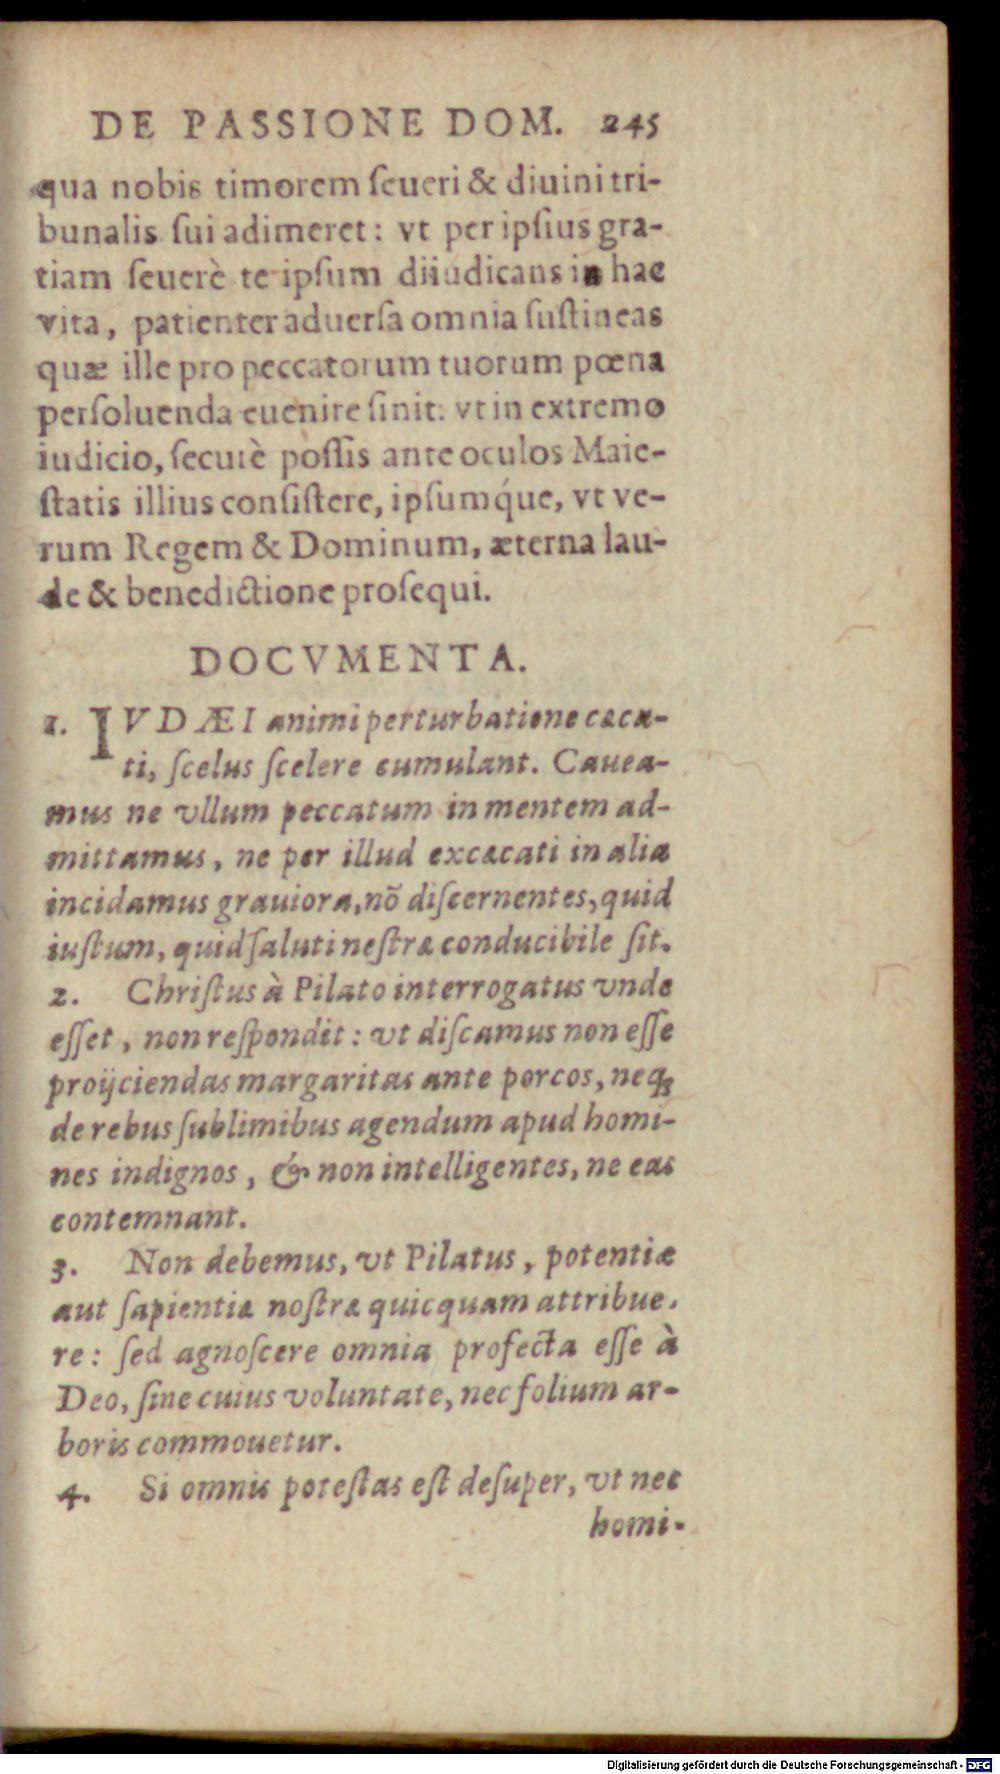 DE PASSIONE DOM. 245
qua nobis timorem ſeueri & diuini tri-
bunalis ſui adimeret: vt per ipſius gra-
tiam ſeuerè te ipſum diiudicans in hac
vita, patienter aduerſa omnia ſuſtineas
quæ ille pro peccatorum tuorum pœna
perſoluenda euenire ſinit: vt in extremo
iudicio, ſecurè poſſis ante oculos Maie-
ſtatis illius conſiſtere, ipſumq́ue, vt ve-
rum Regem & Dominum, æterna lau-
de & benedictione proſequi.
DOCVMENTA.
1. IVDÆI animi perturbatione cæca-
ti, ſcelus ſcelere cumulant. Cauea-
mus ne vllum peccatum in mentem ad-
mittamus, ne per illud excæcati in alia
incidamus grauiora, nõ diſcernentes, quid
iuſtum, quid ſaluti noſtræ conducibile ſit.
2. Chriſtus à Pilato interrogatus vnde
eſſet, non reſpondit: vt diſcamus non eſſe
proijciendas margaritas ante porcos, neq;
de rebus ſublimibus agendum apud homi-
nes indignos, & non intelligentes, ne eas
contemnant.
3. Non debemus, vt Pilatus, potentiæ
aut ſapientiæ noſtræ quicquam attribue-
re: ſed agnoſcere omnia profecta eſſe à
Deo, ſine cuius voluntate, nec folium ar-
boris commouetur.
4. Si omnis poteſtas eſt deſuper, vt nec
homi-
Digitalisierung gefördert durch die Deutsche Forschungsgemeinschaft - DFG